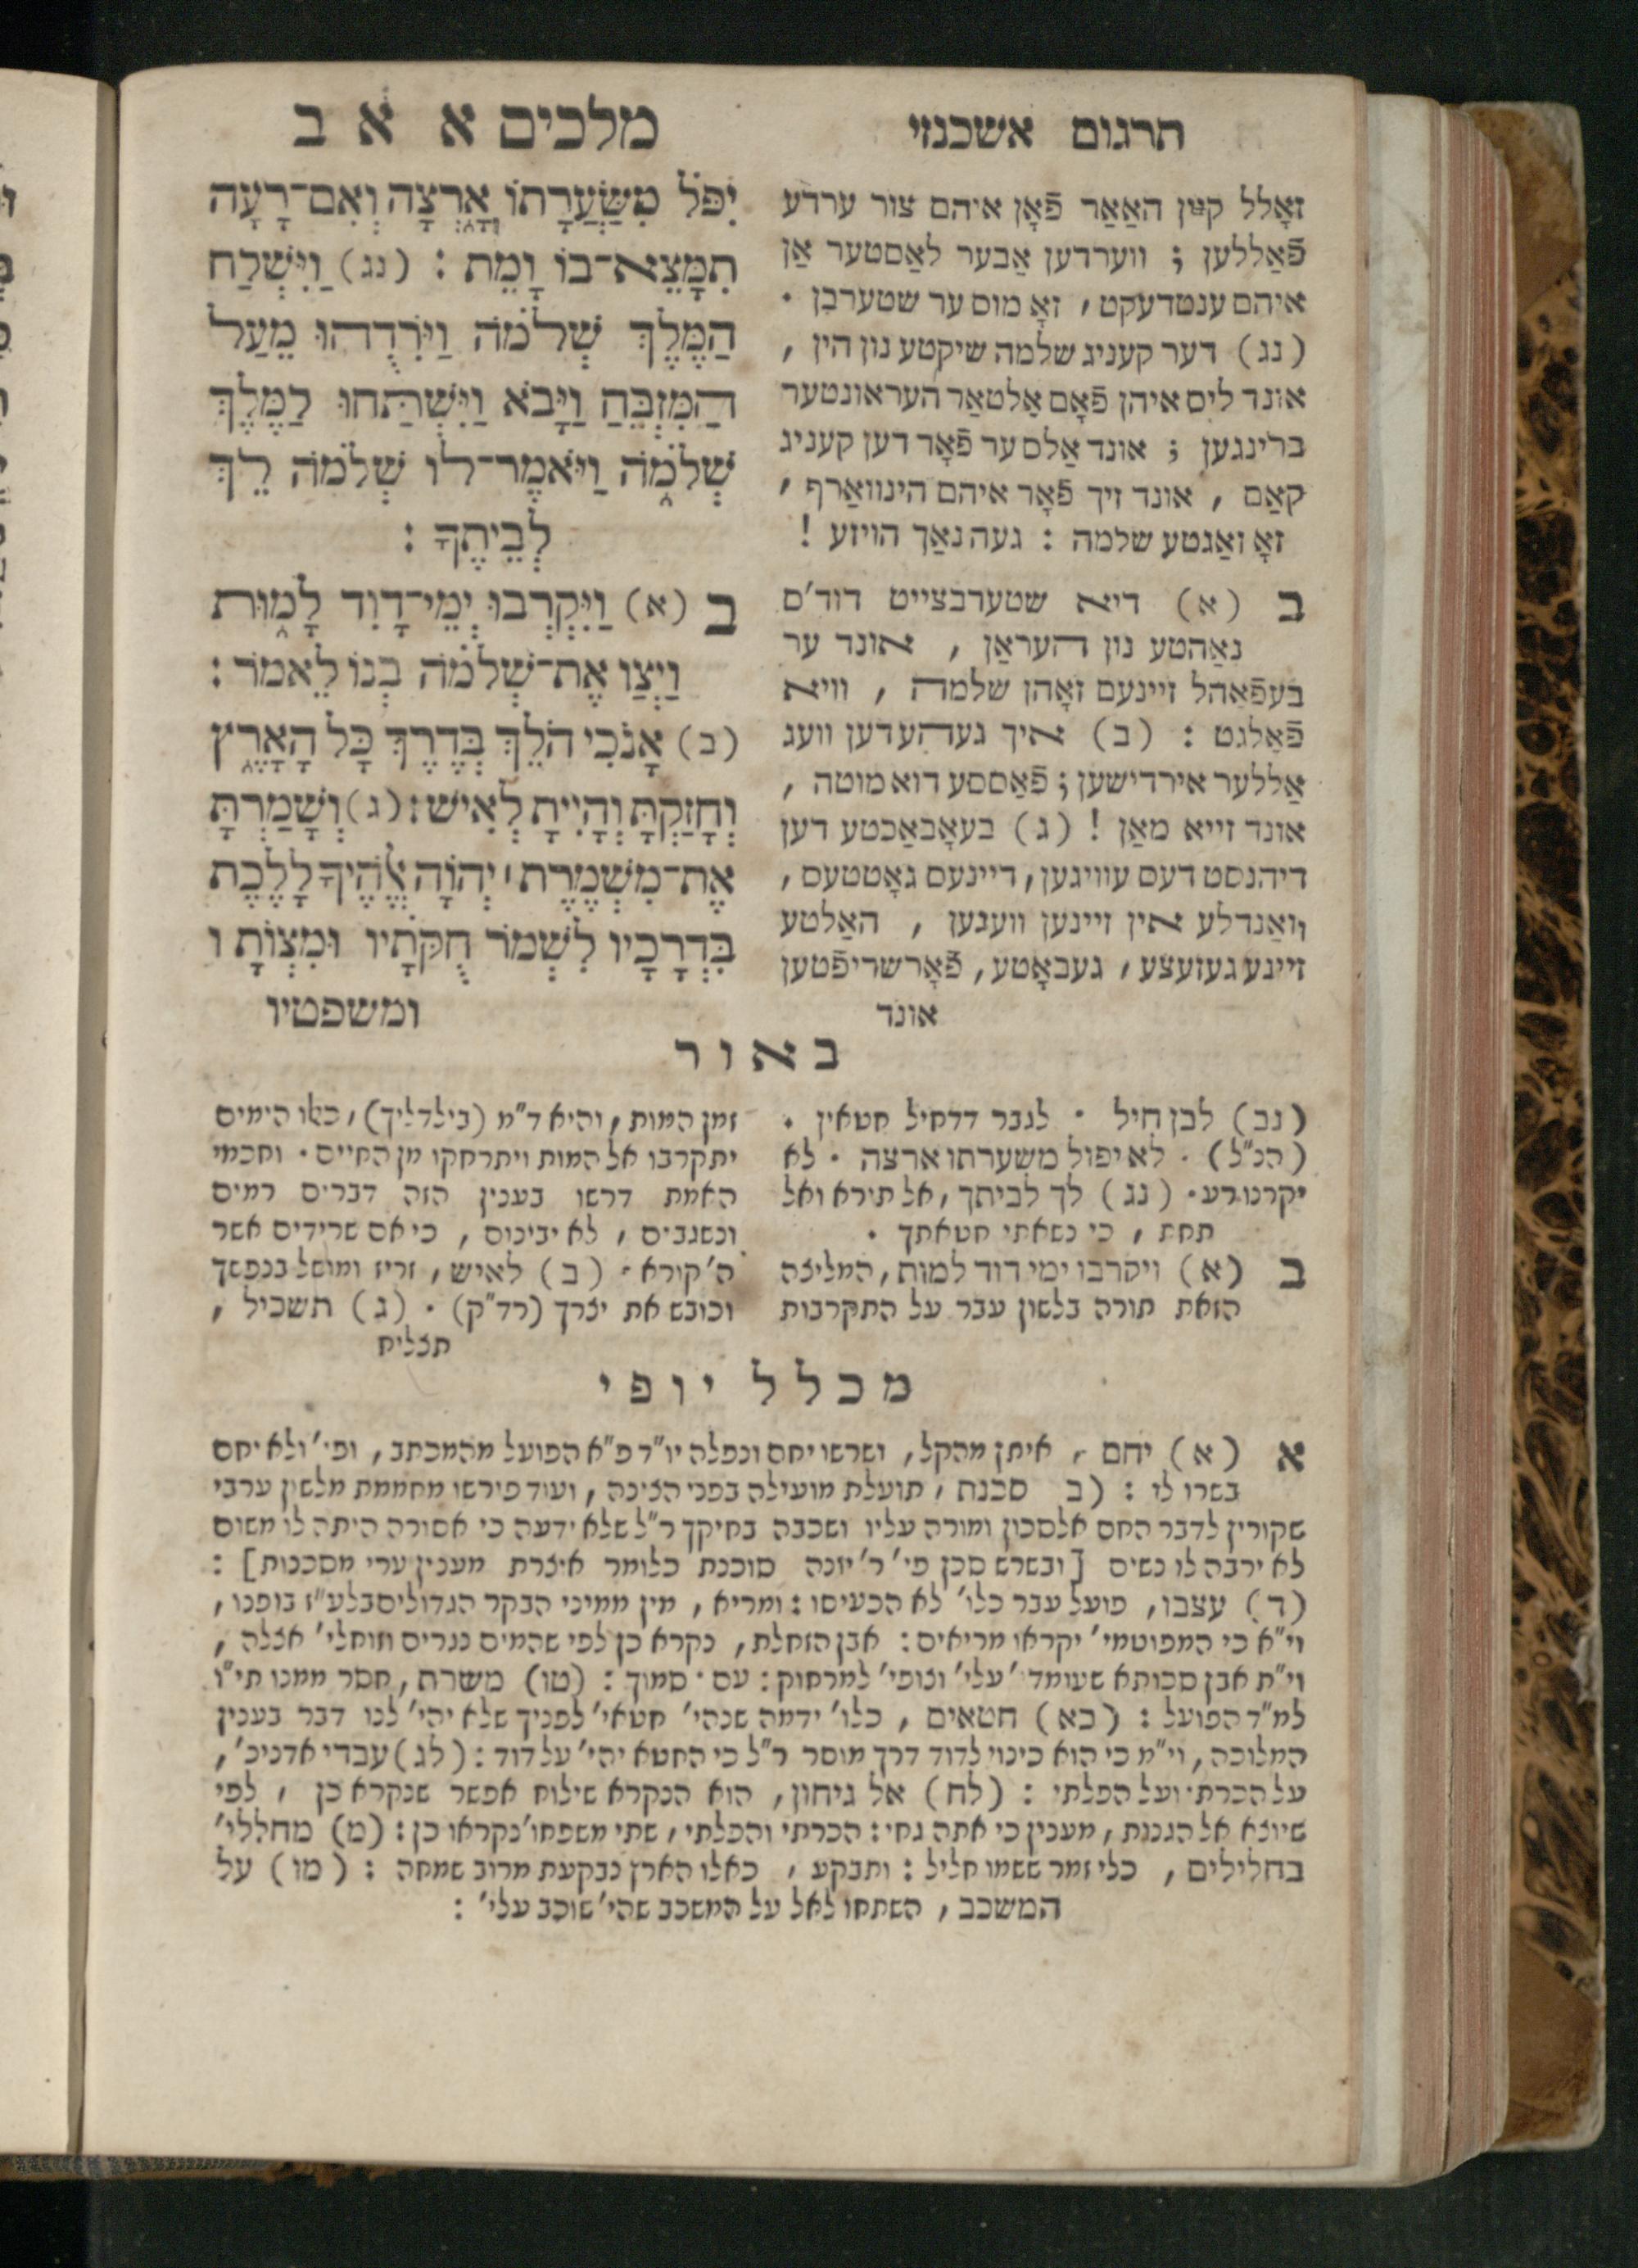 תרגום אשכנזי
מלכים א א ב
זאָלל קיין האַאַר פֿאָן איהם צור ערדע
פֿאַללען ; ווערדען אַבער לאַסטער אַן
איהם ענטדעקט , זאָ מוס ער שטערבן .
(נג) דער קעניג שלמה שיקטע נון הין ,
אונד ליס איהן פֿאָם אַלטאַר העראונטער
ברינגען ; אונד אַלס ער פֿאָר דען קעניג
קאַם , אונד זיך פֿאָר איהם הינווארף ,
זאָ זאַגטע שלמה : געה נאַך הויזע !
ב (א) דיא שטערבצייט דוד'ס
נאַהטע נון העראַן , אונד ער
בעפֿאַהל זיינעם זאָהן שלמה , וויא
פֿאָלגט : (ב) איך געהע דען וועג
אַללער אירדישען ; פֿאַססע דוא מוטה ,
אונד זייא מאַן ! (ג) בעאָבאַכטע דען
דיהנסט דעם עוויגען , דיינעם גאָטטעס ,
וואַנדלע אין זיינען וועגען , האַלטע
זיינע געזעצע , געבאָטע , פֿאָרשריפֿטען
אונד
יִפֹּל מִשַּׂעֲרָתוֹ אָרְצָה וְאִם־רָעָה
תִמָּצֵא־בוֹ וָמֵת : (נג) וַיִּשְׁלַח
הַמֶּלֶךְ שְׁלֹמֹה וַיֹּרִדֻהוּ מֵעַל
הַמִּזְבֵּחַ וַיָּבֹא וַיִּשְׁתַּחוּ לַמֶּלֶךְ
שְׁלֹמֹה וַיֹּאמֶר־לוֹ שְׁלֹמֹה לֵךְ
לְבֵיתֶךָ :
ב (א) וַיִּקְרְבוּ יְמֵי־דָוִד לָמוּת
וַיְצַו אֶת־שְׁלֹמֹה בְנוֹ לֵאמֹר :
(ב) אָנֹכִי הֹלֵךְ בְּדֶרֶךְ כָּל הָאָרֶץ
וְחָזַקְתָּ וְהָיִיתָ לְאִישׁ : (ג) וְשָׁמַרְתָּ
אֶת־מִשְׁמֶרֶת ׀ יְהוָֹה אֱלֹהֶיךָ לָלֶכֶת
בִּדְרָכָיו לִשְׁמֹר חֻקֹּתָיו וּמִצְוֹתָו
ומשפטיו
באור
(נב) לבן חיל . לגבר דדחיל חטאין .
(הנ"ל) . לא יפול משערתו ארצה . לא
יקרנו רע . (נג) לך לביתך , אל תירא ואל
תחת , כי נשאתי חטאתך .
ב (א) ויקרבו ימי דוד למות , המליצה
הזאת תורה בלשון עבר על התקרבות
זמן המות , והיא ד"מ (בילדליך) , כאלו הימים
יתקרבו אל המות ויתרחקו מן החיים . וחכמי
האמת דרשו בענין הזה דברים רמים
ונשגבים , לא יבינום , כי אם שרידים אשר
ה' קורא . (ב) לאיש , זריז ומושל בנפשך
וכובש את יצרך (רד"ק) . (ג) תשכיל ,
תצליח
מכלל יופי
א (א) יחם , איתן מהקל , ושרשו יחם ונפלה יו"ד פ"א הפועל מהמכתב , ופי' ולא יחם
בשרו לו : (ב סכנת , תועלת מועילה בפני הצינה , ועוד פירשו מחממת מלשון ערבי
שקורין לדבר החם אלסכון ומורה עליו ושכבה בחיקך ר"ל שלא ידעה כי אסורה היתה לו משום
לא ירבה לו נשים [ובשרש סכן פי' ר' יונה סוכנת כלומר איצרת מענין ערי מסכנות] :
(ד) עצבו , פועל עבר כלו' לא הכעיסו : ומריא , מין ממיני הבקר הגדולים בלע"ז בופנו ,
וי"א כי המפוטמי' יקראו מריאים : אבן הזחלת , נקרא כן לפי שהמים נגרים וזוחלי' אצלה ,
וי"ת אבן סכותא שעומד' עלי' וצופי' למרחוק : עם . סמוך : (טו) משרת , חסר ממנו תי"ו
למ"ד הפועל : (כא) חטאים , כלו' ידמה שנהי' חטאי' לפניך שלא יהי' לנו דבר בענין
המלוכה , וי"מ כי הוא כינוי לדוד דרך מוסר ר"ל כי החטא יהי' על דוד : (לג) עבדי אדניכ' ,
על הכרת' ועל הפלתי : (לח) אל גיחון , הוא הנקרא שילוח אפשר שנקרא כן , לפי
שיוצא אל הגנות , מענין כי אתה גחי : הכרתי והפלתי , שתי משפחו' נקראו כן : (מ) מחללי'
בחלילים , כלי זמר ששמו חליל : ותבקע , כאלו הארץ נבקעת מרוב שמחה : (מו) על
המשכב , השתחו לאל על המשכב שהי' שוכב עלי' :